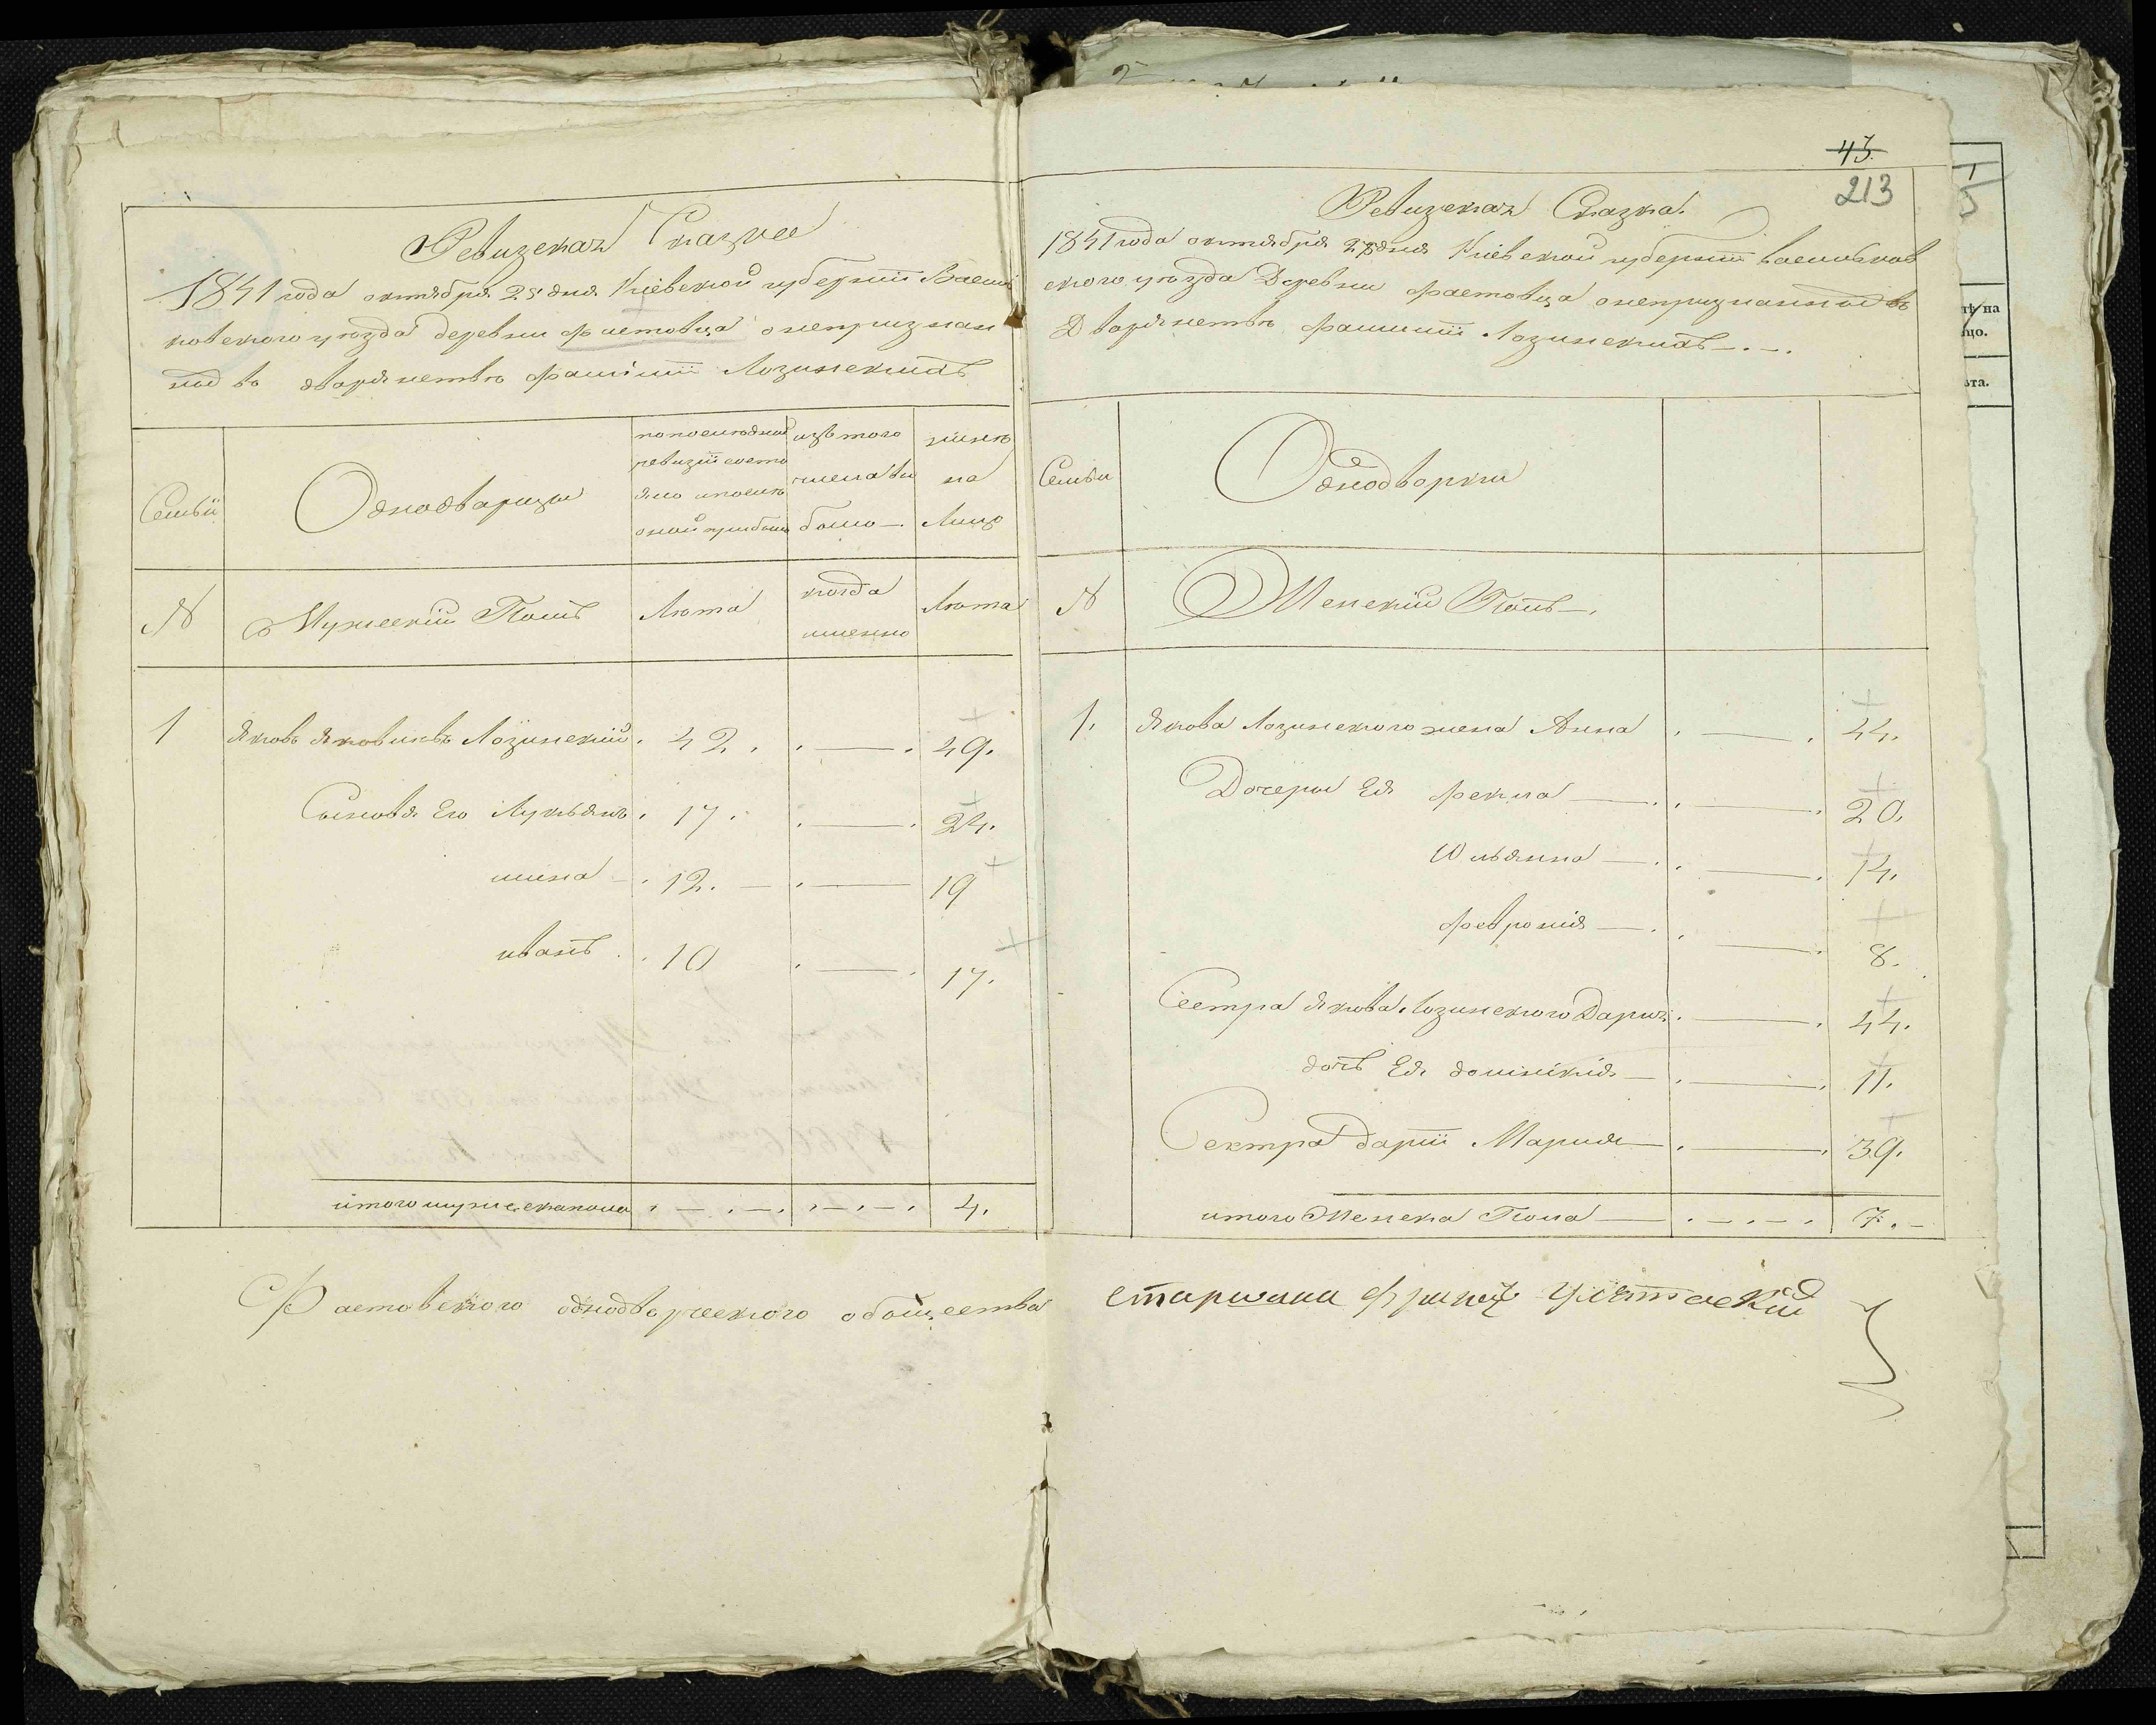 Ревизская Сказка
1841 года октября 25 дня Кіевской губерніи Василь
ковского уѣзда деревни Фастовца о непризнан
ной въ дворянствѣ фамиліи Лозинскихъ
Семьи
Однодворцы
по послѣдней
ревизіи состо
яло и послѣ
оной прибыло
изъ того
числа вы
было
нынѣ
на
Лицо
N
Мужескій Полъ
Лѣта
когда
именно
Лѣта
1 Яковъ Яковливъ Лозинскій. 42. . — . 49.
Сыновя Его Лукьянъ. 17. . — . 24.
мина — . 12. — . — 19
иванъ . . 10 . — . 17.
итого мужеска пола . — . — . . — . — . 4.
Фастовского однодворческого общества
43.
213
Ревизская Сказка.
1841 года октября 25 дня Кіевской губерніи васильков
ского уѣзда Деревни фастовца о непризнанной въ
Дворянствѣ фамиліи Лозинскихъ — . — .
Семьи
Однодворки
N
Женскій Полъ — .
1. Якова Лозинского жена Анна . — . 44.
Дочери Ея фекла — . . — . 20.
Юльянна — . . — . 14.
февронія — . . — . 8.
Сестра Якова Лозинского Дария. — . 44.
дочь Ея доминикія — . — . 11.
Сектра дарii Мария — . — . 39.
итого Женска Пола — . — . — . 7. —
старшина
1
5
тѣ на
цо.
ѣта.